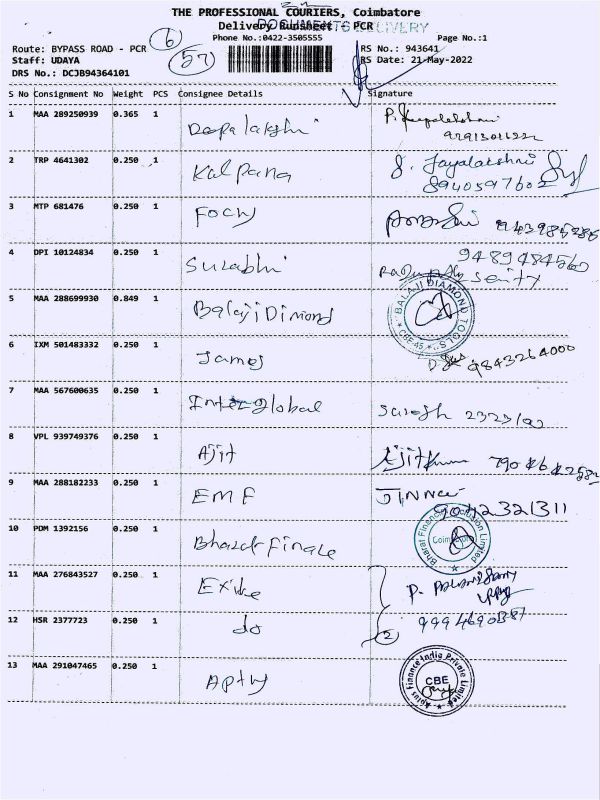 THE PROFESSIONAL COURIERS, Coimbatore
Delivery Runsheet - PCR
DOCUMENTS DELIVERY
Phone No.:0422-3505555
Page No.:1
Route: BYPASS ROAD - PCR
6
57
RS No.: 943641
Staff: UDAYA
RS Date: 21-May-2022
DRS No.: DCJB94364101
S No Consignment No Weight PCS Consignee Details Signature
1 MAA 289250939 0.365 1
2 TRP 4641302 0.250 1 Kalpana J. Jayalakshmi
8940597602
3 MTP 681476 0.250 1
4 DPI 10124834 0.250 1 Surabhi 9489484560
5 MAA 288699930 0.849 1 Balaji Dimond
BALAJI DIAMOND TOOLS
CBE-45
6 IXM 501483332 0.250 1 James 9843264000
7 MAA 567600635 0.250 1 Inter global
8 VPL 939749376 0.250 1 Ajit Ajitkumar
9 MAA 288182233 0.250 1 EMF
9042321311
10 PDM 1392156 0.250 1
Bharat Financial Inclusion Limited
11 MAA 276843527 0.250 1
12 HSR 2377723 0.250 1 do
2
13 MAA 291047465 0.250 1
Aptus Finance India Private Limited
CBE